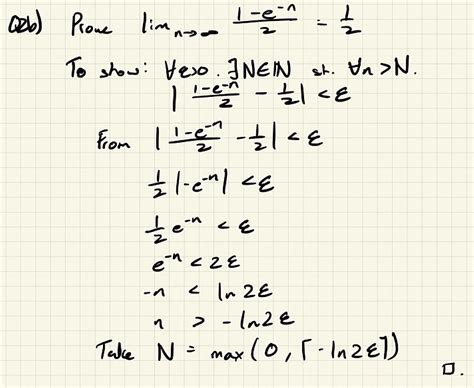 Q2b) Prove lim n→∞ (1-e^-n)/2 = 1/2
To show: ∀ε>0. ∃N∈ℕ st. ∀n>N.
| (1-e^-n)/2 - 1/2 | < ε
From | (1-e^-n)/2 - 1/2 | < ε
1/2 |-e^-n| < ε
1/2 e^-n < ε
e^-n < 2ε
-n < ln 2ε
n > -ln 2ε
Take N = max(0, ⌈-ln 2ε⌉)
□.